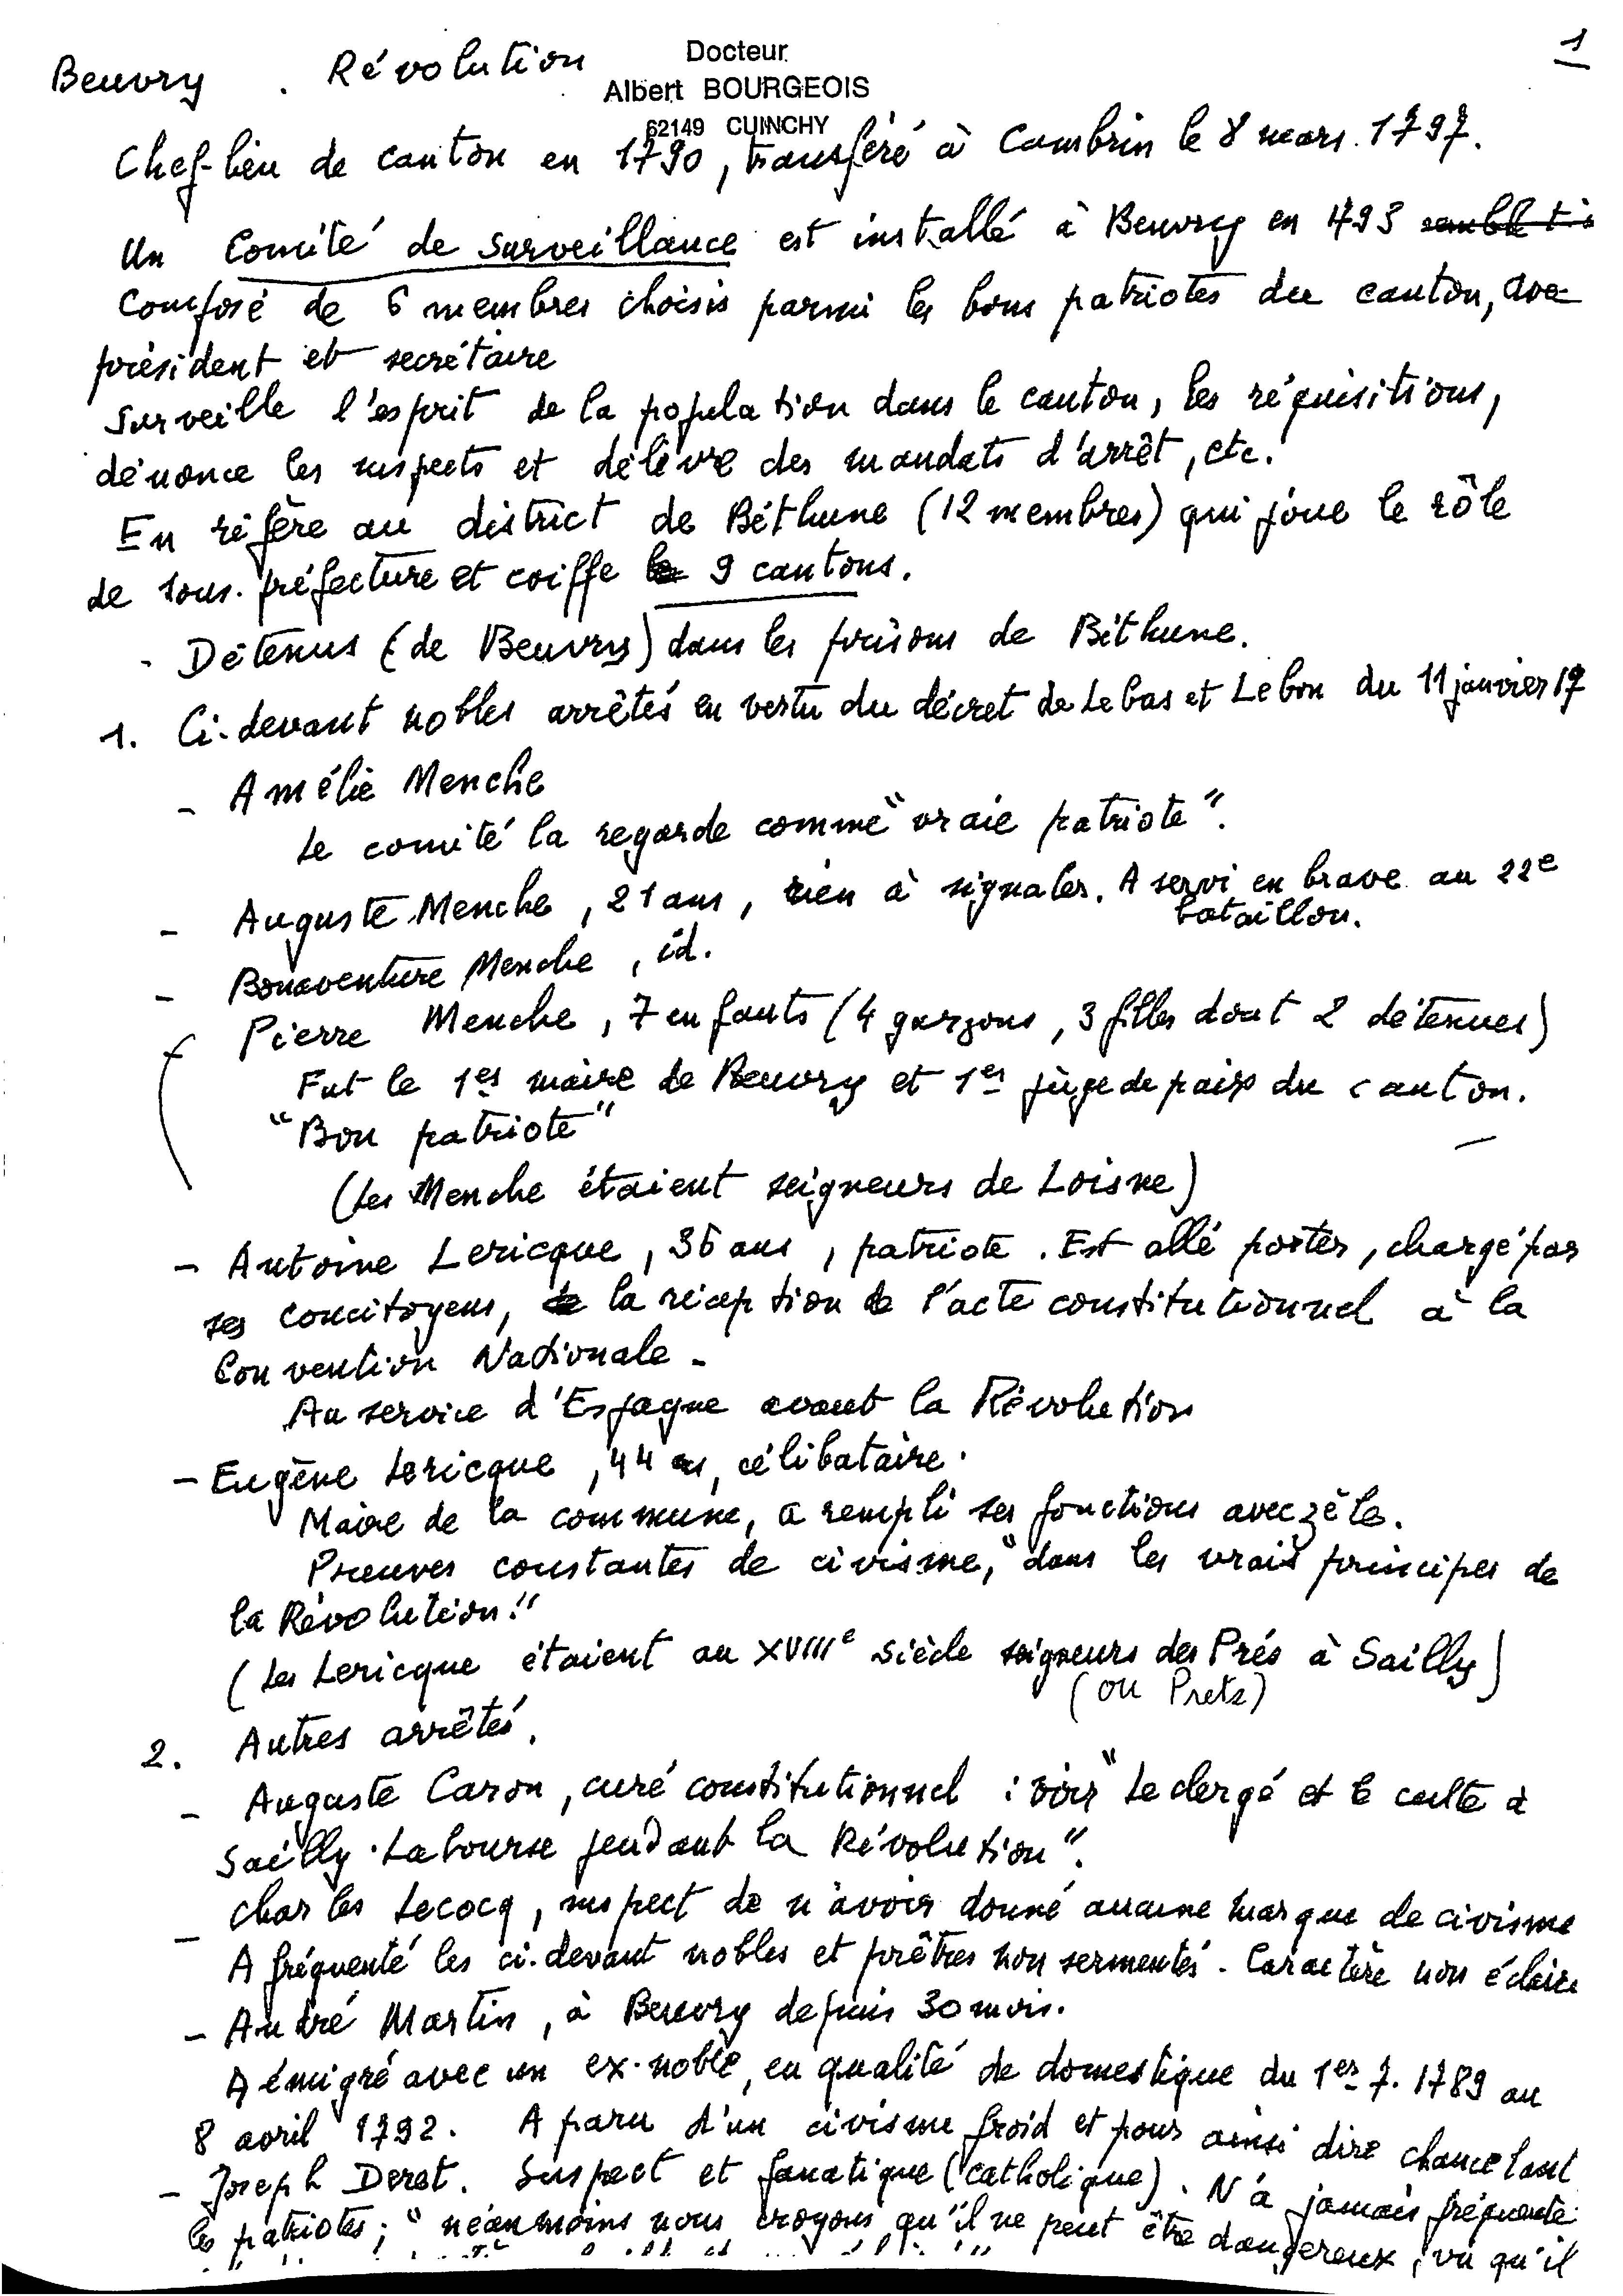 1
Beuvry . Révolution
Docteur
Albert BOURGEOIS
62149 CUINCHY
Chef-lieu de canton en 1790, transféré à Cambrin le 8 mars 1797.
Un Comité de Surveillance est installé à Beuvry en 1793
Composé de 6 membres choisis parmi les bons patriotes du canton, avec
président et secrétaire
Surveille l'esprit de la population dans le canton, les réquisitions,
dénonce les suspects et délivre des mandats d'arrêt, etc.
En réfère au district de Béthune (12 membres) qui joue le rôle
de sous-préfecture et coiffe 9 cantons.
- Détenus (de Beuvry) dans les prisons de Béthune.
1. Ci-devant nobles arrêtés en vertu du décret de Lebas et Lebon du 11 janvier 17
- Amélie Menche
Le comité la regarde comme "vraie patriote".
- Auguste Menche, 21 ans, rien à signaler. A servi en brave au 22e
bataillon.
- Bonaventure Menche, id.
Pierre Menche, 7 enfants (4 garçons, 3 filles dont 2 détenues)
Fut le 1er maire de Beuvry et 1er juge de paix du canton.
"Bon patriote"
(Les Menche étaient seigneurs de Loisne)
- Antoine Lericque, 36 ans, patriote. Est allé porter, chargé par
ses concitoyens, la réception de l'acte constitutionnel à la
Convention Nationale -
Au service d'Espagne avant la Révolution
- Eugène Lericque, 44 ans, célibataire.
Maire de la commune, a rempli ses fonctions avec zèle.
Preuves constantes de civisme, "dans les vrais principes de
la Révolution."
(Les Lericque étaient au XVIIIe siècle seigneurs des Prés à Sailly)
(ou Pretz)
2. Autres arrêtés.
- Auguste Caron, curé constitutionnel : voir "Le clergé et le culte à
Sailly-Labourse pendant la Révolution".
- Charles Lecocq, suspect de n'avoir donné aucune marque de civisme
A fréquenté les ci-devant nobles et prêtres non sermentés. Caractère non éclairé
- André Martin, à Beuvry depuis 30 mois.
A émigré avec un ex-noble, en qualité de domestique du 1er 7. 1789 au
8 avril 1792. A paru d'un civisme froid et pour ainsi dire chancelant
- Joseph Deret. Suspect et fanatique (catholique). N'a jamais fréquenté
les patriotes; "néanmoins nous croyons qu'il ne peut être dangereux, vu qu'il